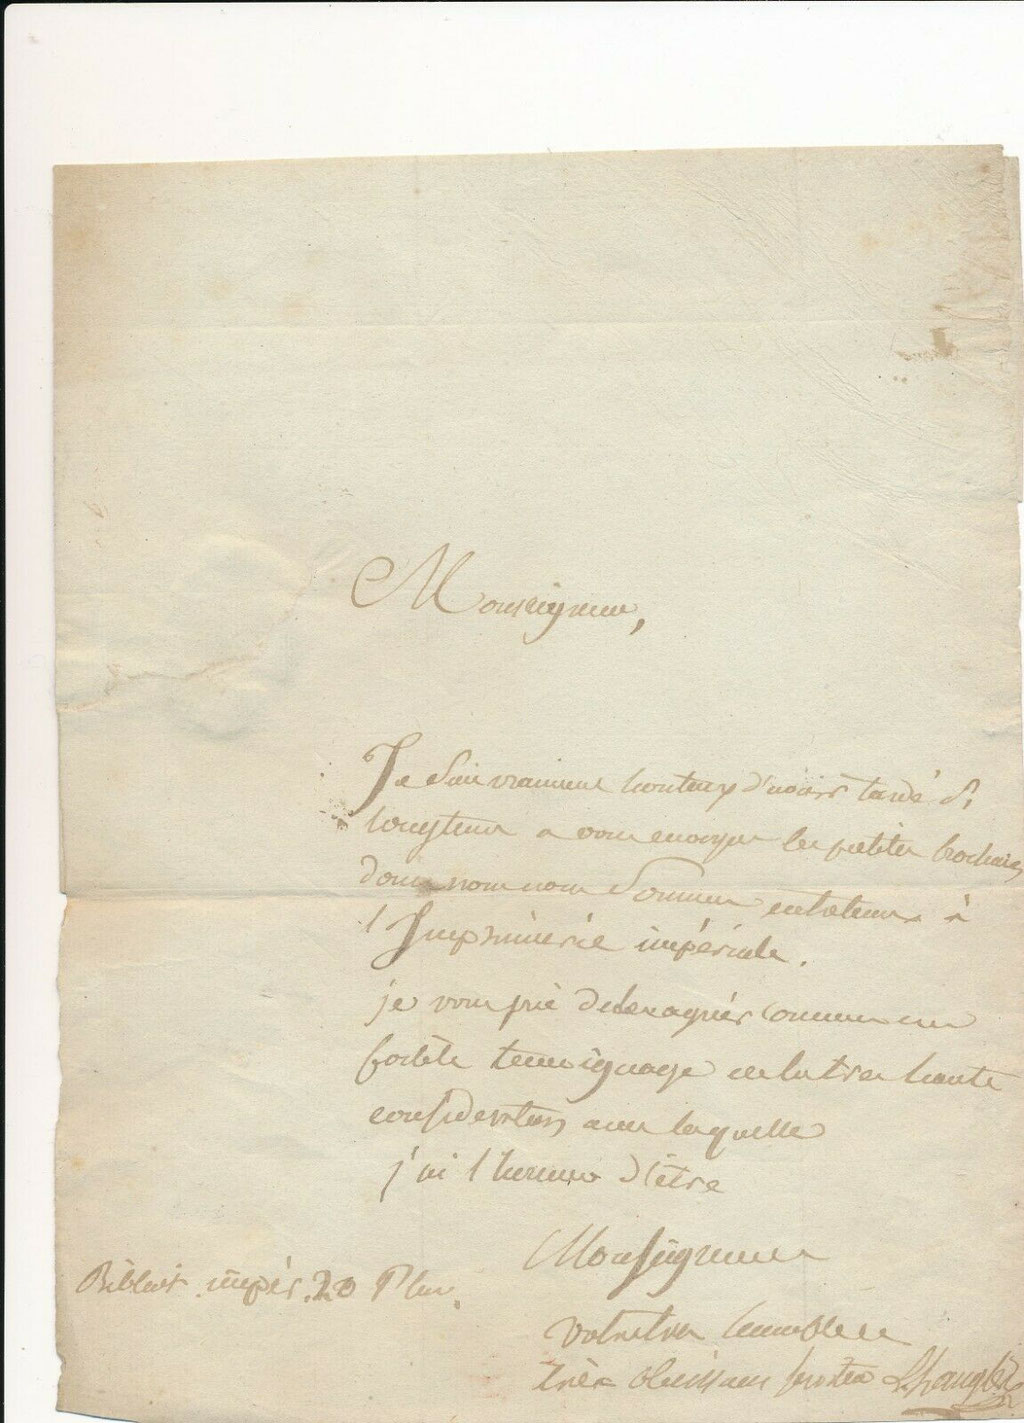 Monseigneur,
Je suis vraiment honteux d'avoir tardé si
longtems a vous envoyer les petites brochures
dont nous nous sommes entretenus à
l'Imprimerie impériale.
je vous prie de les agréer comme un
foible temoignage de la tres haute
consideration avec laquelle
j'ai l'honneur d'être
Monseigneur
Biblioth. impér. 20 Pluv.
votre tres humble et
très obeissant serviteur L. Langlès